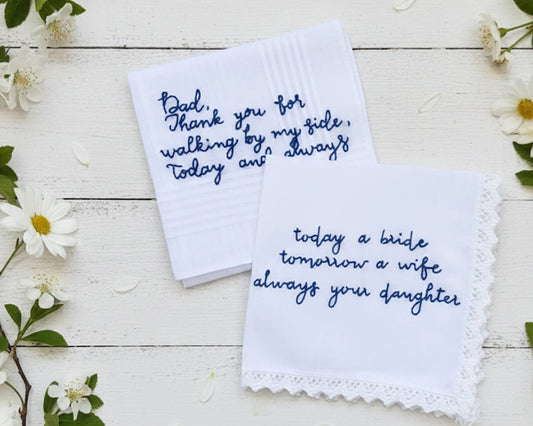 Dad,
Thank you for
walking by my side,
Today and always
today a bride
tomorrow a wife
always your daughter